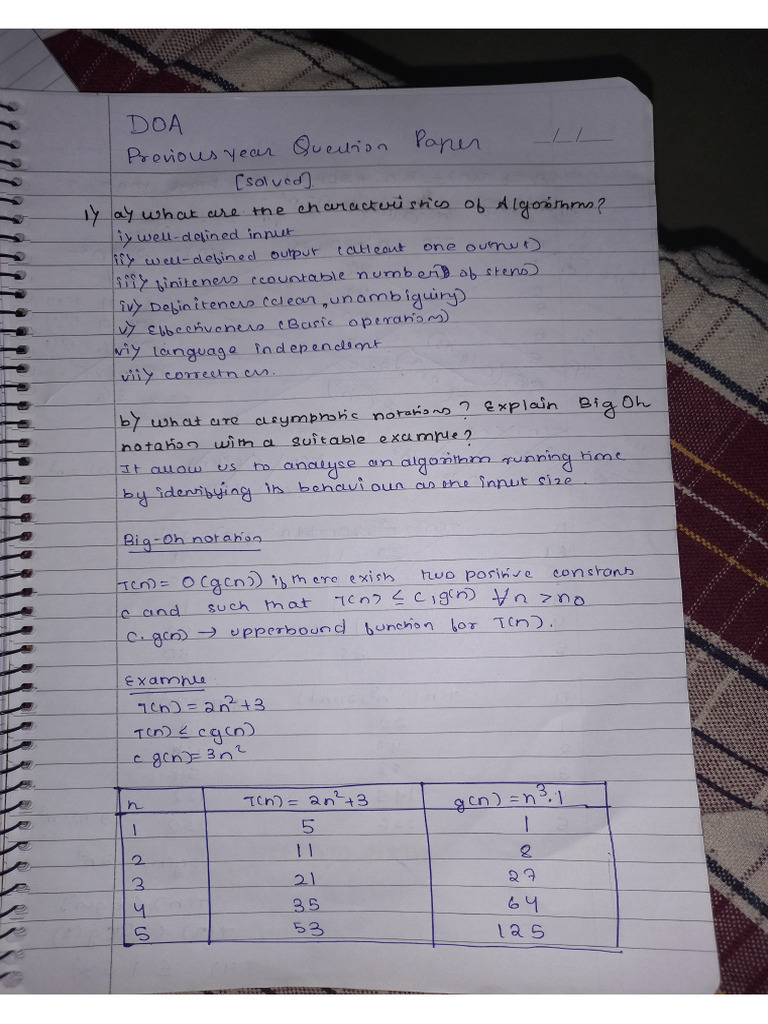 DOA
Previous year Question Paper _/_/_
[Solved]
1) a) What are the characteristics of Algorithms?
i) well-defined input
ii) well-defined output (atleast one output)
iii) finiteness (countable number of steps)
iv) Definiteness (clear, unambiguity)
v) Effectiveness (Basic operations)
vi) language independent
vii) correctness.
b) What are asymptotic notations? Explain Big Oh
notation with a suitable example?
It allow us to analyse an algorithm running time
by identifying its behaviour as the input size.
Big-Oh notation
T(n) = O(g(n)) if there exists two positive constans
c and such that T(n) ≤ c, g(n) ∀n > n₀
C. g(n) → upperbound function for T(n).
Example
T(n) = 2n²+3
T(n) ≤ cg(n)
c g(n) = 3n²
n T(n) = 2n²+3 g(n) = n³.1
1 5 1
2 11 8
3 21 27
4 35 64
5 53 125